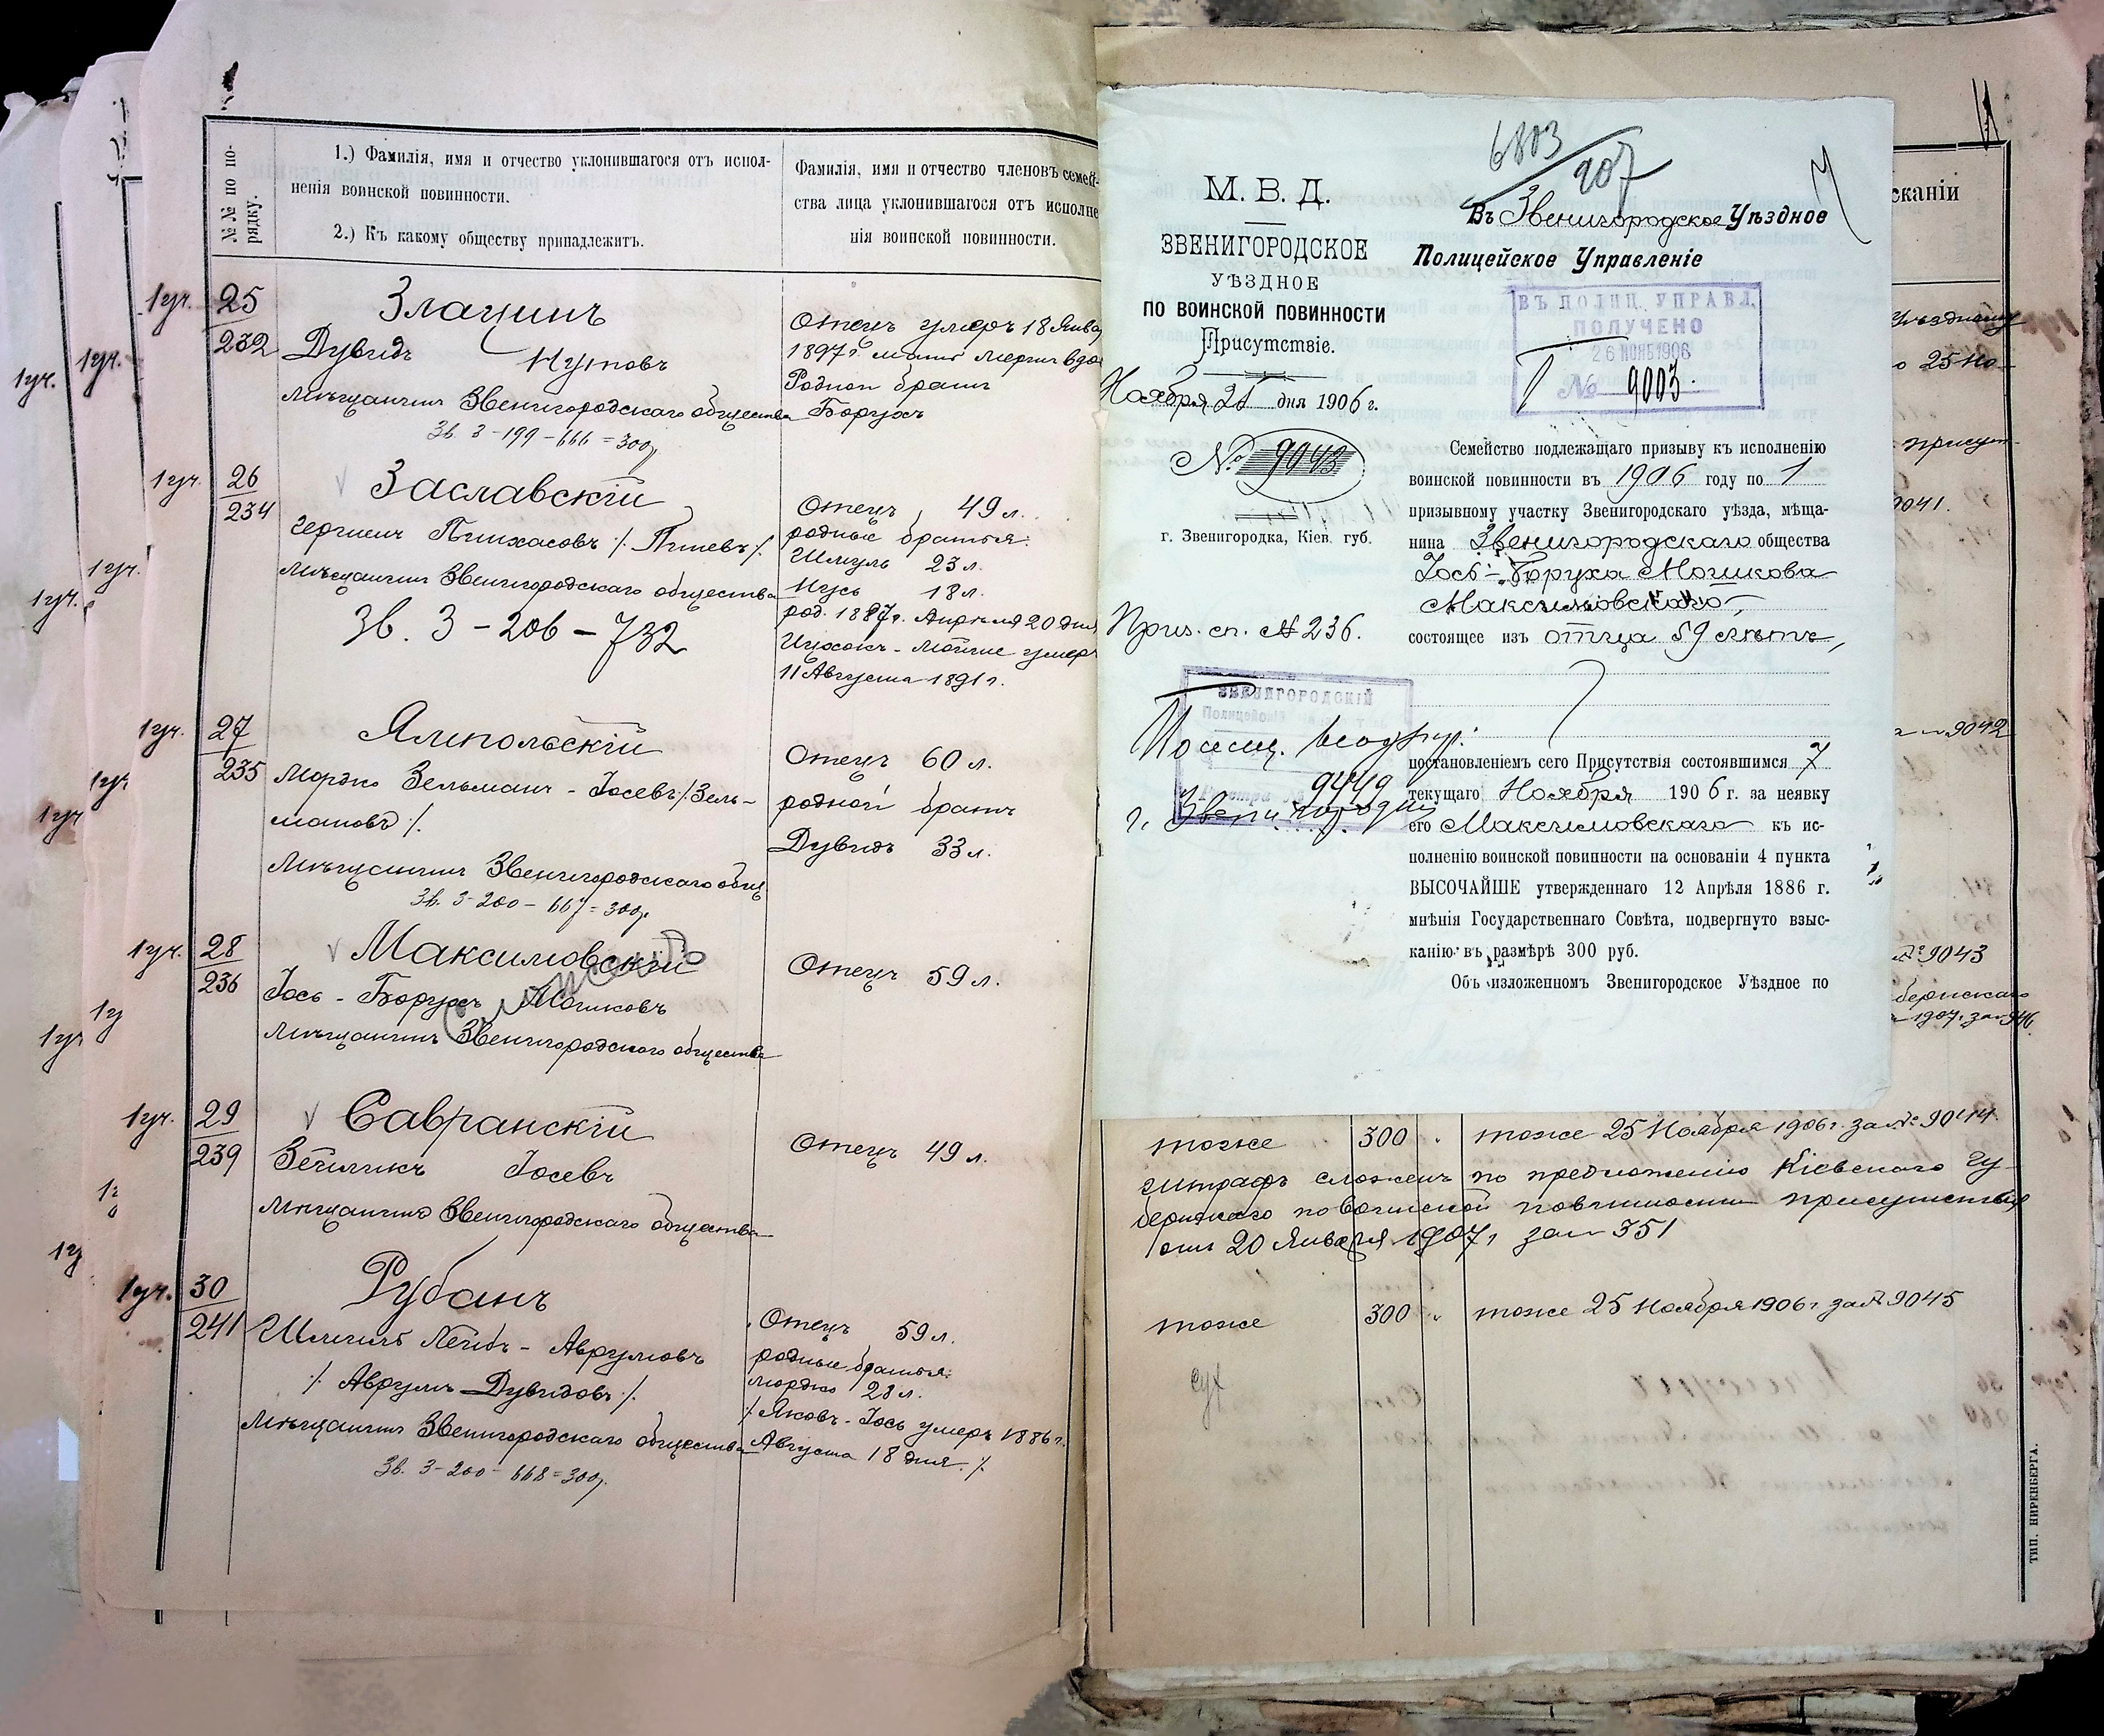 № № по по-
рядку.
1.) Фамилія, имя и отчество уклонившагося отъ испол-
ненія воинской повинности.
2.) Къ какому обществу принадлежитъ.
Фамилія, имя и отчество членовъ семей-
ства лица уклонившагося отъ исполне
нія воинской повинности.
1 уч. 25
232
Дувидъ
Мѣщанинъ Звенигородскаго общества
Зв. 3-199-666=300р
Отецъ умеръ 18 Янва
1897 г. мать вдо
Родной братъ
Борухъ
1 уч. 26
234
Заславскій
Пинхасовъ
Мѣщанинъ Звенигородскаго общества
Зв. 3-206-732
Отецъ 49 л.
родные братья:
Шмуль 23 л.
Нусь 18 л.
род. 1887 г. Апрѣля 20 дня
Ицхокъ - умеръ
11 Августа 1891 г.
1 уч. 27
235
Ямпольскій
Мордко Зельманъ - Іосевъ /: Зель-
мановъ :/.
Мѣщанинъ Звенигородскаго общ
Зв. 3-200-667=300р.
Отецъ 60 л.
родной братъ
Дувидъ 33 л.
1 уч. 28
236
Максимовскій
Іось - Борухъ Мошковъ
Мѣщанинъ Звенигородскаго общества
Отецъ 59 л.
1 уч. 29
239
Савранскій
Зейликъ Іосевъ
Мѣщанинъ Звенигородскаго общества
Отецъ 49 л.
1 уч. 30
241
Рубанъ
Лейбъ - Аврумовъ
/: Аврумъ Дувидовъ :/.
Мѣщанинъ Звенигородскаго общества
Зв. 3-200-668=300р.
Отецъ 59 л.
родные братья:
Мордко 28 л.
/: Яковъ - Іось умеръ 1886 г.
Августа 18 дня. :/
М. В. Д.
ЗВЕНИГОРОДСКОЕ
УѢЗДНОЕ
ПО ВОИНСКОЙ ПОВИННОСТИ
Присутствіе.
Ноября 25 дня 1906 г.
№ 9043
г. Звенигородка, Кіев. губ.
Приз. сп. № 236.
ЗВЕНИГОРОДСКІЙ
9449
г. Звенигородки
6803
207
Въ Звенигородское Уѣздное
Полицейское Управленіе
ВЪ ПОЛИЦ. УПРАВЛ.
ПОЛУЧЕНО
26 НОЯБ 1906
№ 9003.
Семейство подлежащаго призыву къ исполненію
воинской повинности въ 1906 году по 1
призывному участку Звенигородскаго уѣзда, мѣща-
нина Звенигородскаго общества
Іось-Боруха Мошкова
Максимовскаго,
состоящее изъ отца 59 лѣтъ,
постановленіемъ сего Присутствія состоявшимся 7
текущаго Ноября 1906 г. за неявку
его Максимовскаго къ ис-
полненію воинской повинности на основаніи 4 пункта
ВЫСОЧАЙШЕ утвержденнаго 12 Апрѣля 1886 г.
мнѣнія Государственнаго Совѣта, подвергнуто взыс-
канію въ размѣрѣ 300 руб.
Объ изложенномъ Звенигородское Уѣздное по
сканіи
Уѣздному
25 Но
присут-
9041.
№ 9042
№ 9043
бернскаго
1907 г. за № 346
тоже 300 тоже 25 Ноября 1906 г. за № 9044.
штрафъ сложенъ по предложенію Кіевскаго Гу-
бернскаго по воинской повинности присутствія
отъ 20 Января 1907 г. за № 351
тоже 300 тоже 25 Ноября 1906 г. за № 9045
ТИП. НИРЕНБЕРГА.